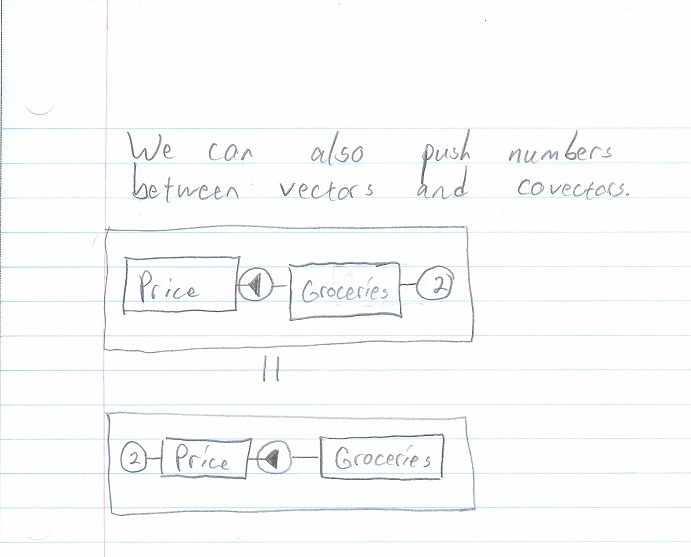 We can also push numbers
between vectors and covectors.
Price Groceries 2
||
2 Price Groceries